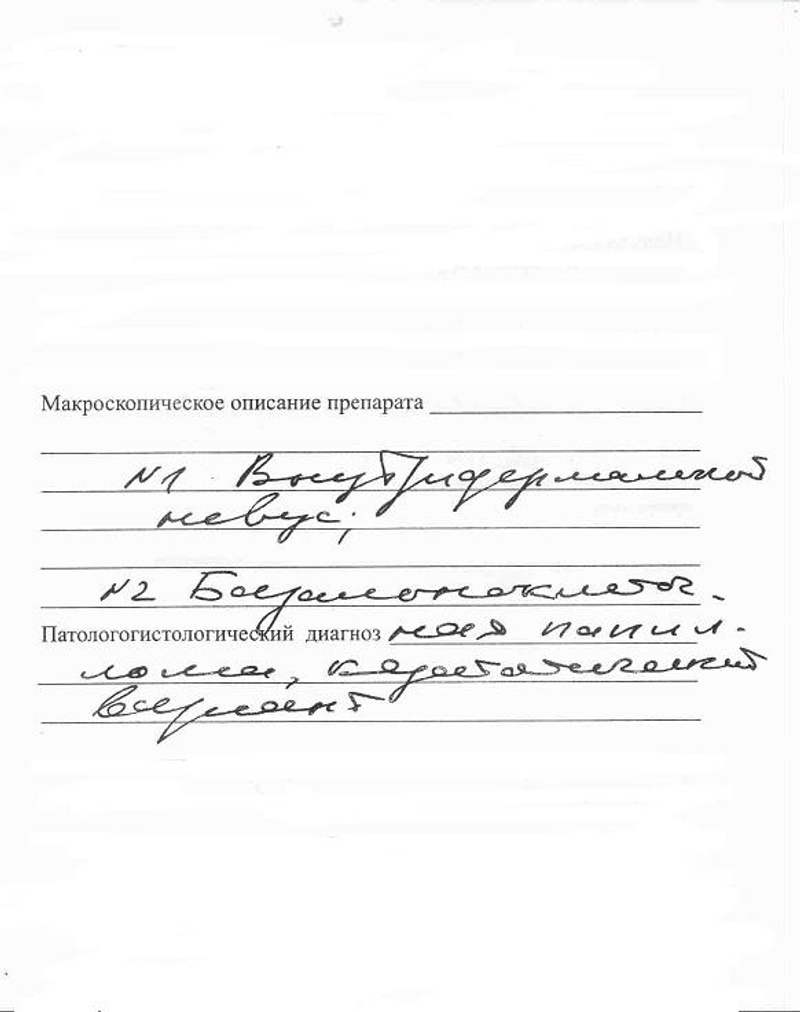 Макроскопическое описание препарата
N1 Внутридермальной
невус;
N2 Базальноклеточ-
Патологогистологический диагноз ная папил-
лома, кератотический
вариант